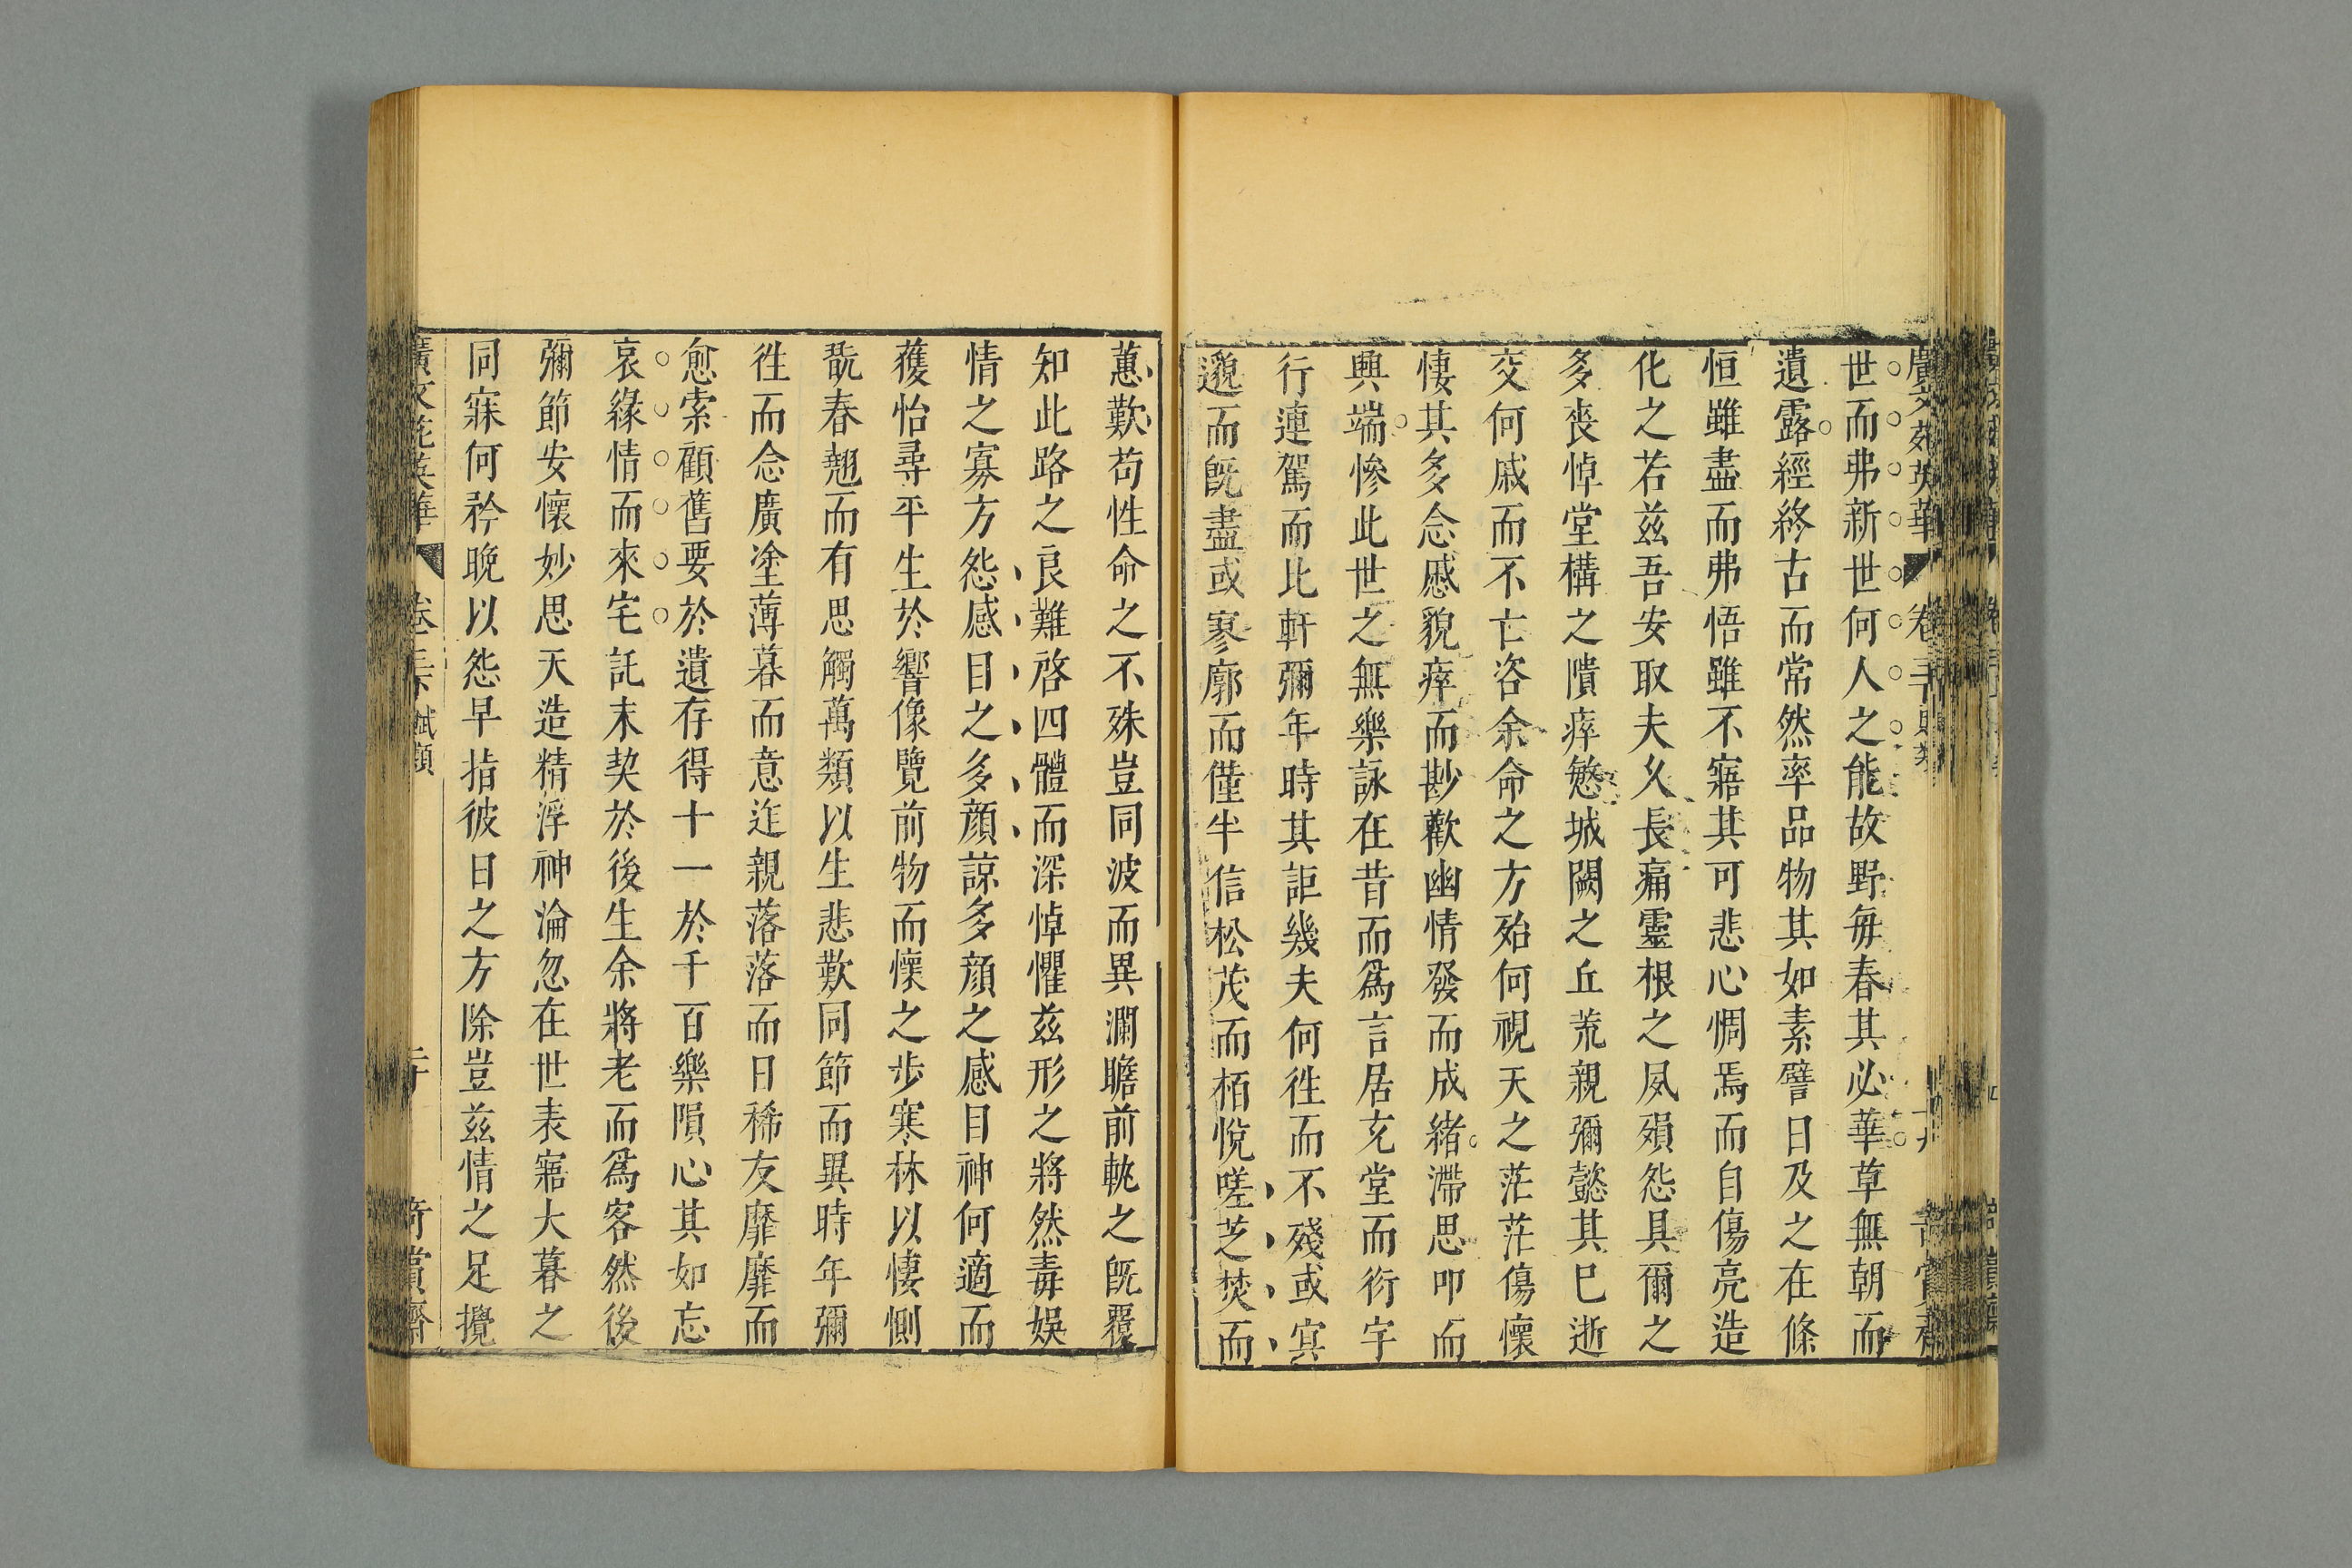 世而弗新世何人之能故野每春其必華草無朝而
遺露經終古而常然率品物其如素譬日及之在條
恒雖盡而弗悟雖不寤其可悲心惆焉而自傷亮造
化之若茲吾安取夫久長痛靈根之夙殞怨具爾之
多喪悼堂構之隤瘁慜城闕之丘荒親彌懿其已逝
交何戚而不亡咨余命之方殆何視天之茫茫傷懷
悽其多念慼貌瘁而尠歡幽情發而成緒滯思叩而
興端慘此世之無樂詠在昔而為言居充堂而衍宇
行連駕而比軒彌年時其詎幾夫何徃而不殘或冥
邈而既盡或寥廓而僅半信松茂而栢悅嗟芝焚而
蕙歎苟性命之不殊豈同波而異瀾瞻前軌之既覆
知此路之良難啓四體而深悼懼茲形之將然毒娛
情之寡方怨感目之多顔諒多顔之感目神何適而
獲怡尋平生於響像覽前物而懷之步寒林以悽惻
翫春翹而有思觸萬類以生悲歎同節而異時年彌
徃而念廣塗薄暮而意迮親落落而日稀友靡靡而
愈索顧舊要於遺存得十一於千百樂隕心其如忘
哀緣情而來宅託末契於後生余將老而為客然後
彌節安懷妙思天造精浮神淪忽在世表寤大暮之
同寐何矜晚以怨早指彼日之方除豈茲情之足攪
廣文苑英華 卷二下 賦類 二十 奇賞齋